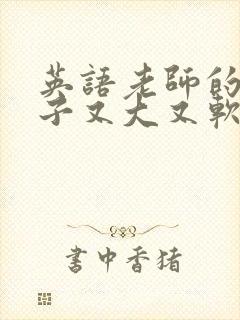 英語老師的
子又大又軟
書中香豬